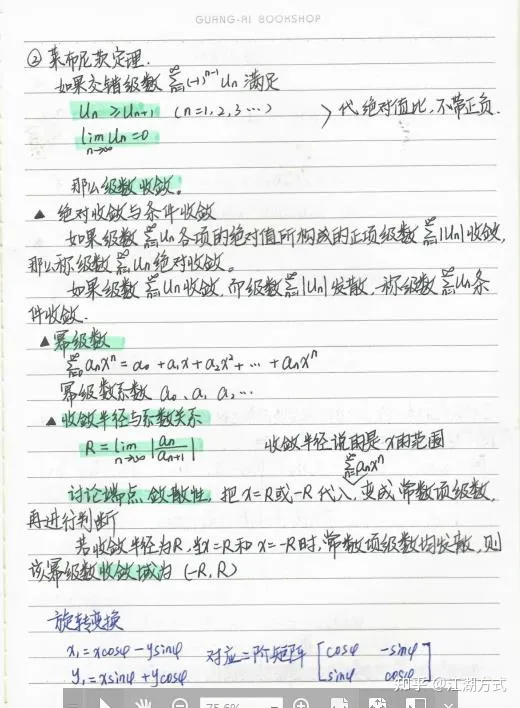 GUANG-AI BOOKSHOP
② 莱布尼茨定理.
如果交错级数 ∑_{n=1}^∞ (-1)^{n-1} Un 满足
Un ≥ Un+1 (n=1,2,3…) 〉代绝对值比,不带正负.
lim_{n→∞} Un = 0
那么级数收敛。
▲ 绝对收敛与条件收敛
如果级数 ∑_{n=1}^∞ Un 各项的绝对值所构成的正项级数 ∑_{n=1}^∞ |Un| 收敛,
那么称级数 ∑_{n=1}^∞ Un 绝对收敛。
如果级数 ∑_{n=1}^∞ Un 收敛,而级数 ∑_{n=1}^∞ |Un| 发散,称级数 ∑_{n=1}^∞ Un 条
件收敛.
▲ 幂级数
∑_{n=0}^∞ anx^n = a0 + a1x + a2x² + … + anx^n
幂级数系数 a0、a1 a2…
▲ 收敛半径与系数关系
R = lim_{n→∞} |an/an+1| 收敛半径说的是 x 的范围
∑_{n=0}^∞ anx^n
讨论端点敛散性,把 x=R 或 -R 代入,变成常数项级数,
再进行判断
若收敛半径为R,当x=R 和 x=-R时,常数项级数均发散,则
该幂级数收敛域为 (-R, R)
旋转变换
x1 = xcosφ - ysinφ 对应二阶矩阵 [cosφ -sinφ
y1 = xsinφ + ycosφ sinφ cosφ]
75.6%
知乎 @江湖方式